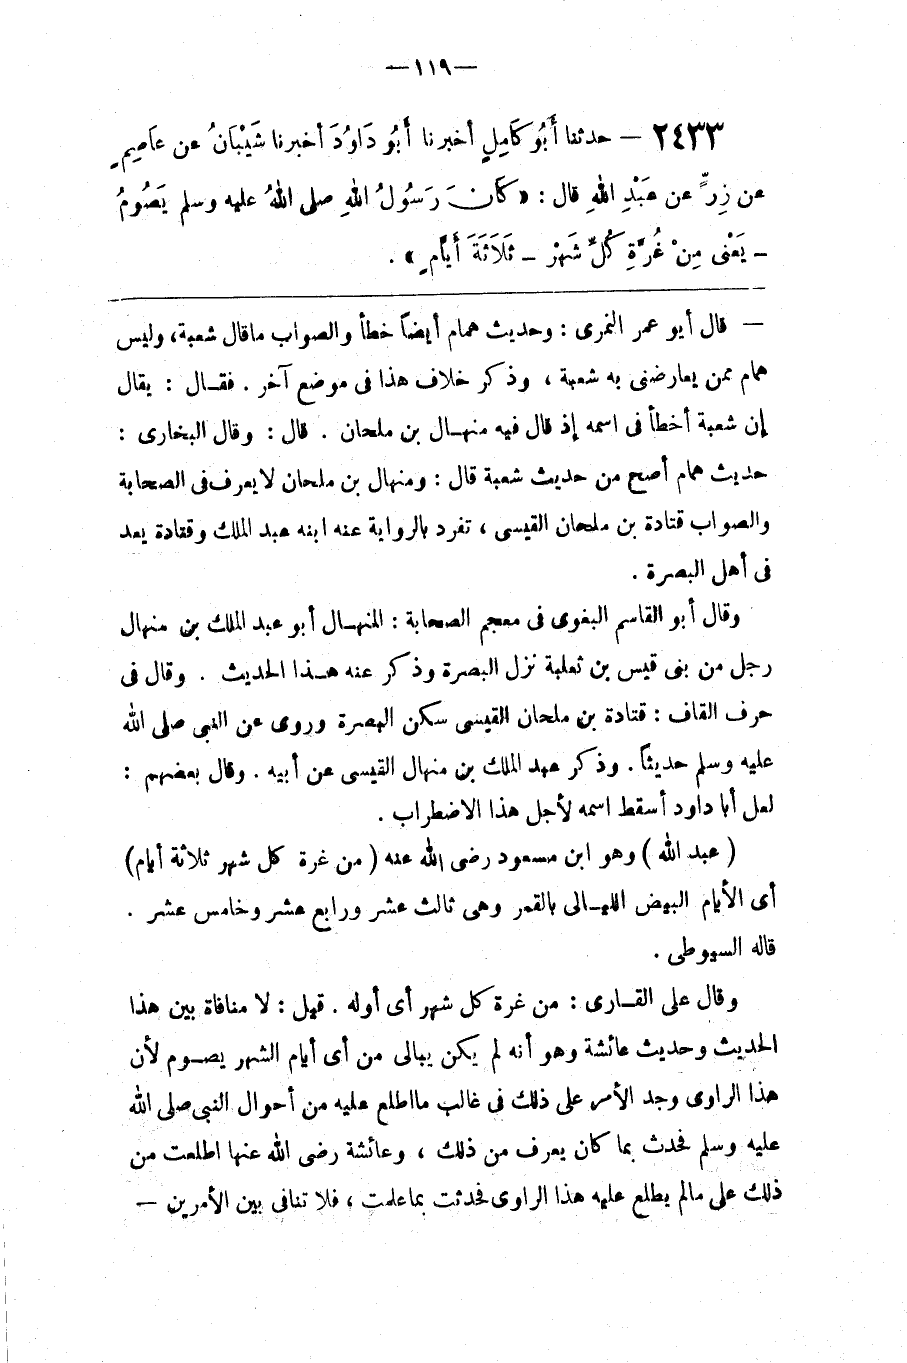 —١١٩—
٢٤٣٣ — حدثنا أَبُو كَامِلٍ أخبرنا أَبُو دَاوُدَ أخبرنا شَيْبَانُ عن عَاصِمٍ
عن زِرٍّ عن عَبْدِ اللهِ قال : « كَانَ رَسُولُ اللهِ صلى اللهُ عليه وسلم يَصُومُ
ـ يَعْنى مِنْ غُرَّةِ كُلِّ شَهْرٍ ـ ثَلَاثَةَ أَيَّامٍ » .
— قال أبو عمر النمرى : وحديث همام أيضاً خطأ والصواب ماقال شعبة، وليس
همام ممن يعارضنى به شعبة ، وذكر خلاف هذا فى موضع آخر . فقـال : يقال
إن شعبة أخطأ فى اسمه إذ قال فيه منهـال بن ملحان . قال : وقال البخارى :
حديث همام أصح من حديث شعبة قال : ومنهال بن ملحان لايعرف فى الصحابة
والصواب قتادة بن ملحان القيسى ، تفرد بالرواية عنه ابنه عبد الملك وقتادة يعد
فى أهل البصرة .
وقال أبو القاسم البغوى فى معجم الصحابة : المنهـال أبو عبد الملك بن منهال
رجل من بنى قيس بن ثعلبة نزل البصرة وذكر عنه هـذا الحديث . وقال فى
حرف القاف : قتادة بن ملحان القيسى سكن البصرة وروى عن النبى صلى الله
عليه وسلم حديثاً . وذكر عبد الملك بن منهال القيسى عن أبيه . وقال بعضهم :
لعل أبا داود أسقط اسمه لأجل هذا الاضطراب .
( عبد الله ) وهو ابن مسعود رضى الله عنه ( من غرة كل شهر ثلاثة أيام )
أى الأيام البيض الليـالى بالقمر وهى ثالث عشر ورابع عشر وخامس عشر .
قاله السيوطى .
وقال على القـارى : من غرة كل شهر أى أوله . قيل : لا منافاة بين هذا
الحديث وحديث عائشة وهو أنه لم يكن يبالى من أى أيام الشهر يصـوم لأن
هذا الراوى وجد الأمر على ذلك فى غالب مااطلع عليه من أحوال النبى صلى الله
عليه وسلم فحدث بما كان يعرف من ذلك ، وعائشة رضى الله عنها اطلعت من
ذلك على مالم يطلع عليه هذا الراوى فحدثت بماعلمت ، فلا تنافى بين الأمرين —